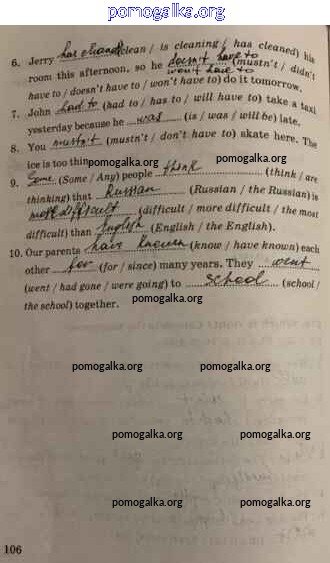 pomogalka.org
6. Jerry has cleaned (clean / is cleaning / has cleaned) his
room this afternoon, so he doesn't have to (mustn't / didn't
won't have to
have to / doesn't have to / won't have to) do it tomorrow.
7. John had to (had to / has to / will have to) take a taxi
yesterday because he was (is / was / will be) late.
8. You mustn't (mustn't / don't have to) skate here. The
ice is too thin. pomogalka.org pomogalka.org
9. Some (Some / Any) people think (think / are
thinking) that Russian (Russian / the Russian) is
more difficult (difficult / more difficult / the most
difficult) than English (English / the English).
10. Our parents have known (know / have known) each
other for (for / since) many years. They went
(went / had gone / were going) to school (school /
the school) together. pomogalka.org
pomogalka.org pomogalka.org
pomogalka.org pomogalka.org
pomogalka.org pomogalka.org
106